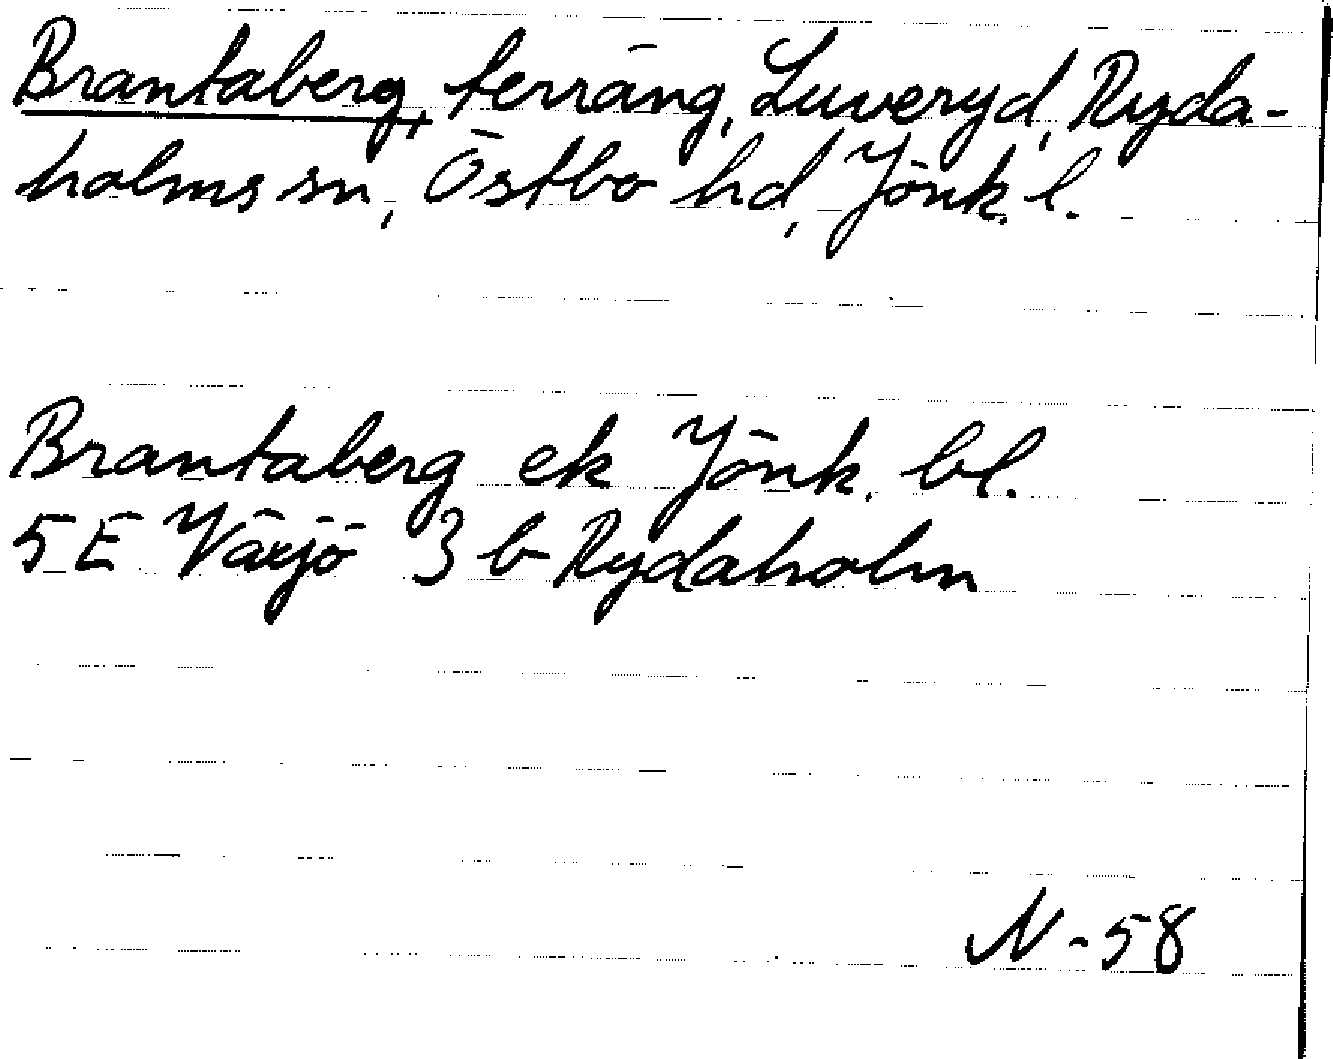 Brantaberg, terräng, Luveryd, Ryda-
holms sn, Östbo hd, Jönk. l.
Brantaberg ek Jönk. bl.
5 E Växjö 3 b Rydaholm
N-58